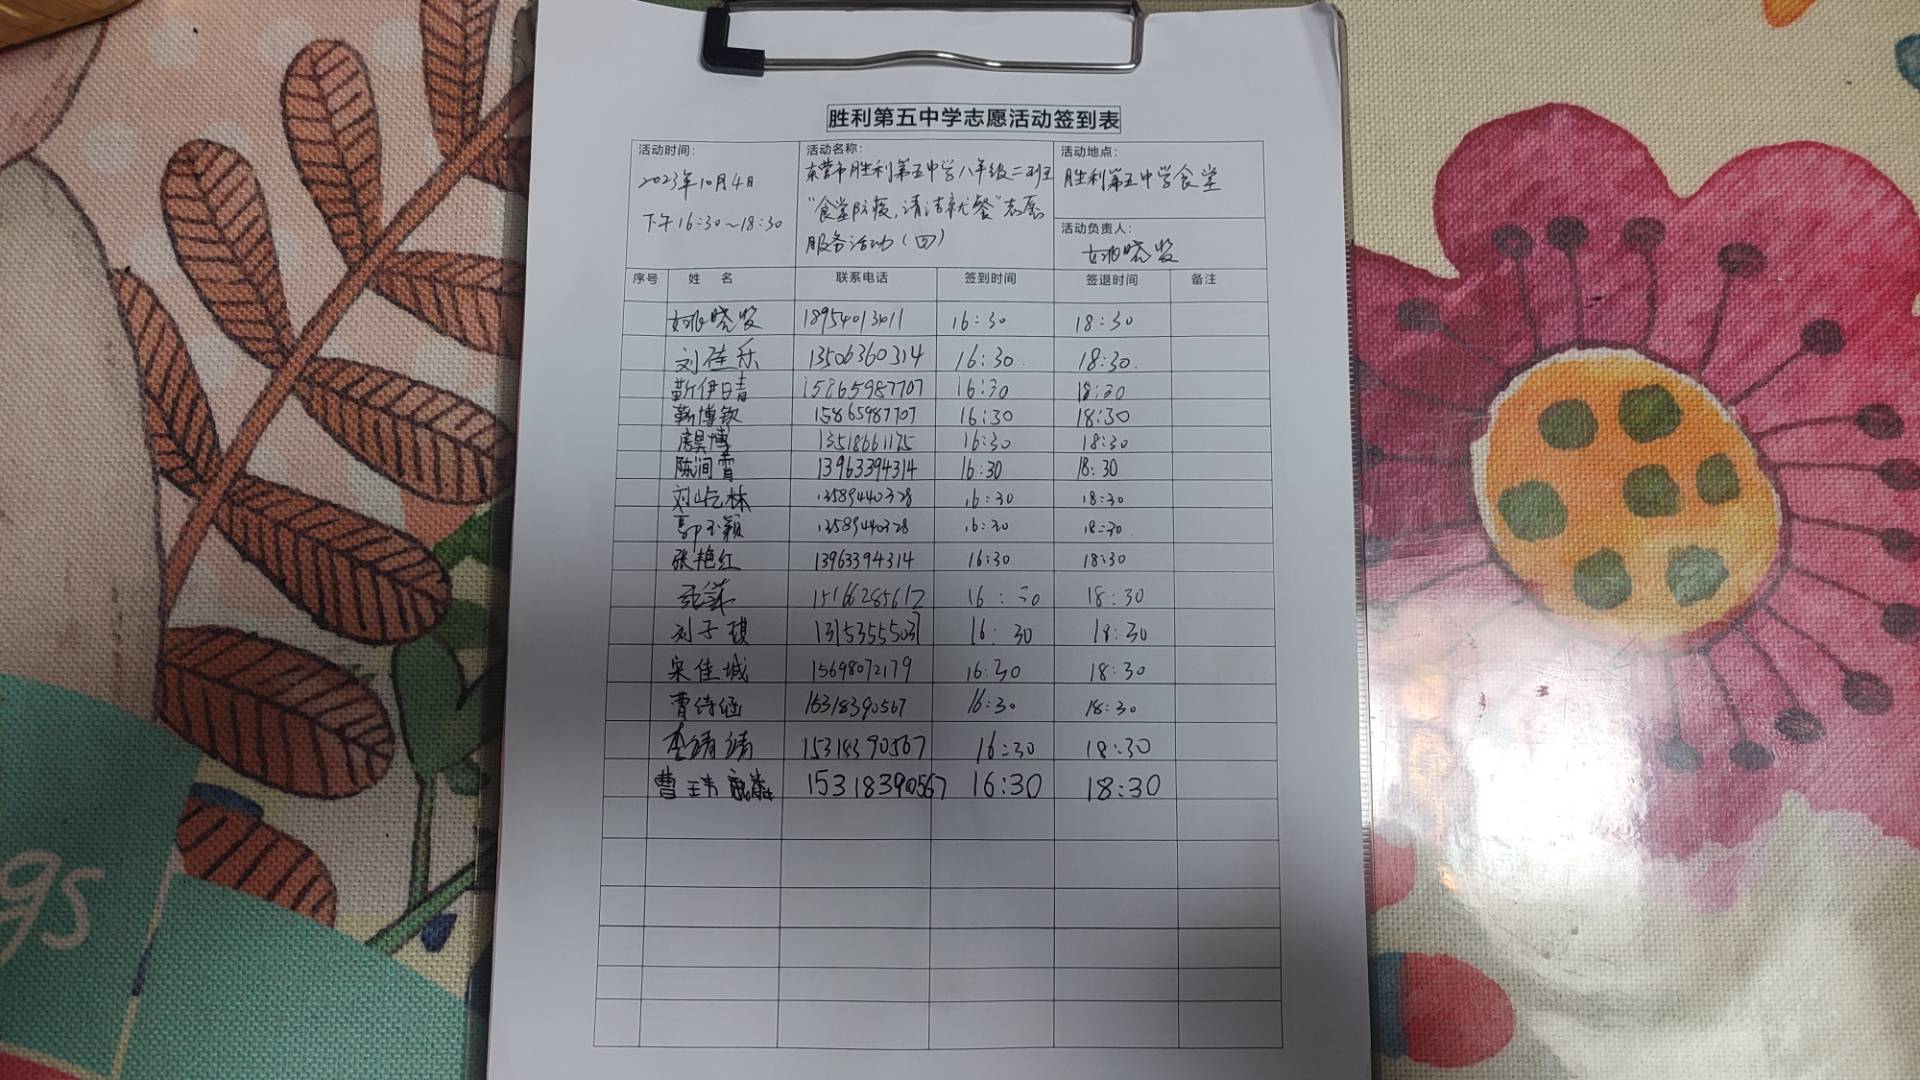 胜利第五中学志愿活动签到表
活动时间：
2023年10月4日
下午16:30～18:30
活动名称：
东营市胜利第五中学八年级二班
“食堂防疫，清洁就餐”志愿
服务活动（四）
活动地点：
胜利第五中学食堂
活动负责人：
姚晓
序号 姓 名 联系电话 签到时间 签退时间 备注
姚晓 18954013011 16:30 18:30
刘佳乐 13506360314 16:30 18:30
靳伊晴 15865987707 16:30 18:30
靳博钦 15865987707 16:30 18:30
昊博 13518661175 16:30 18:30
陈润霄 13963394314 16:30 18:30
刘屹林 13589440328 16:30 18:30
郭玉颖 13589440328 16:30 18:30
张艳红 13963394314 16:30 18:30
15166285612 16:30 18:30
刘子琪 13153555031 16:30 18:30
宋佳城 15698072179 16:30 18:30
曹诗涵 15318390567 16:30 18:30
李靖靖 15318390567 16:30 18:30
曹玮 15318390567 16:30 18:30
gs